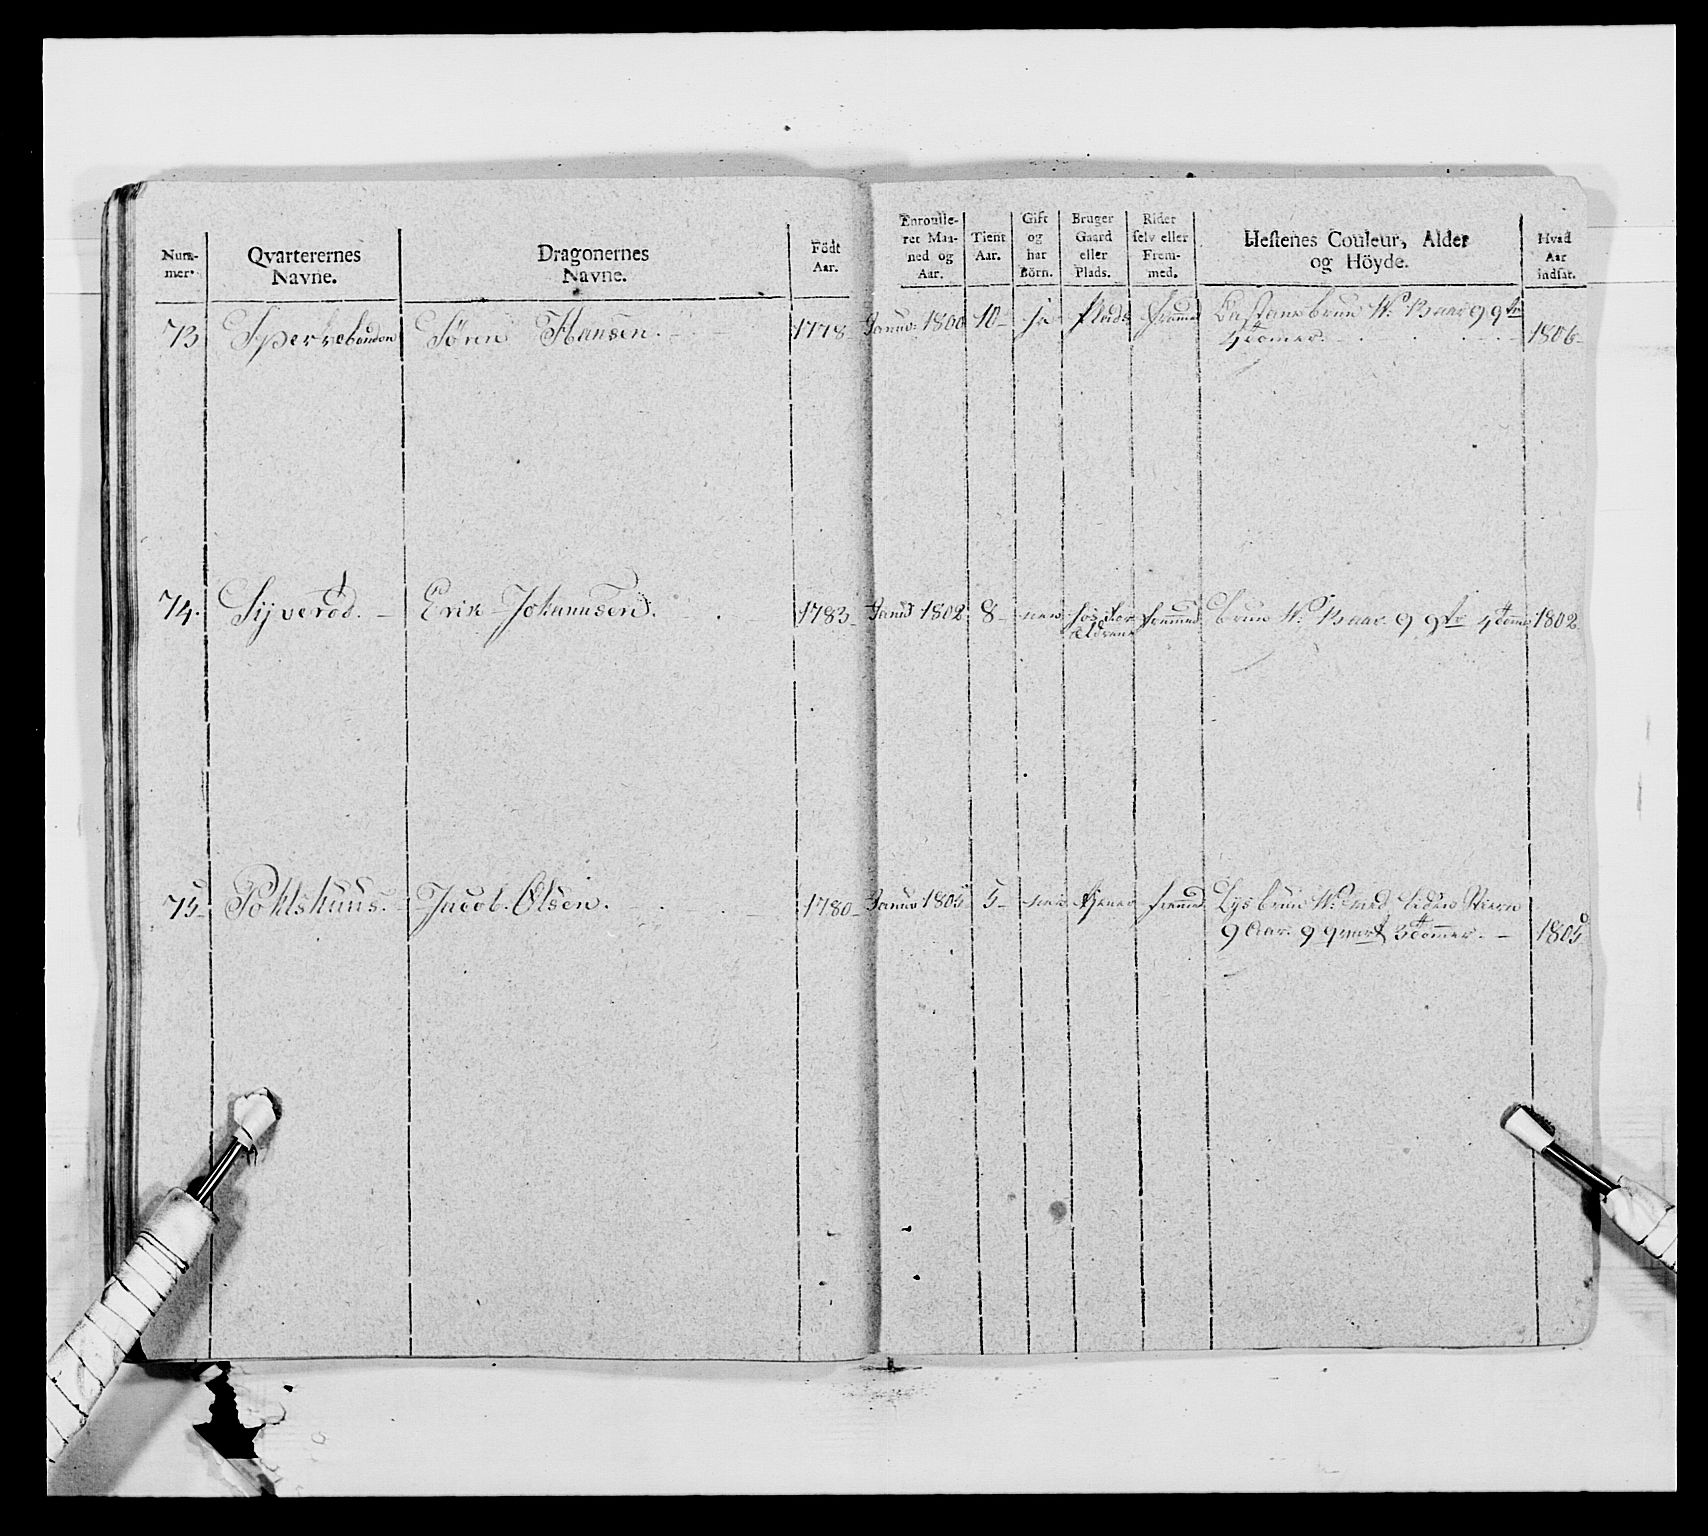 Num-
mer.
Qvarterernes
Navne.
Dragonernes
Navne.
Födt
Aar.
Enroulle-
ret Maa-
ned og
Aar.
Tient
Aar.
Gift
og
har
Börn.
Bruger
Gaard
eller
Plads.
Rider
selv eller
Frem-
med.
Hestenes Couleur, Alder
og Höyde.
Hvad
Aar
indsat.
73 Sperrebonden Sören Hansen. 1778 Januar: 1800 10 ja Plads fremed Castanebrun W: 13 aar 9 qtr
4 tomer. 1806
74. Syveröd. Erik Johannsen. 1783 Janu: 1802 8 nei hos
Eldrene fremed brun W: 13 aar 9 qtr 4 tomer 1802
75 Pohlshuus. Jacob Olsen. 1780 Januar 1805 5 nei tjener fremed Lysbrun W: med liden Stiern
9 Aar. 9 qvart 3 tommer. 1805